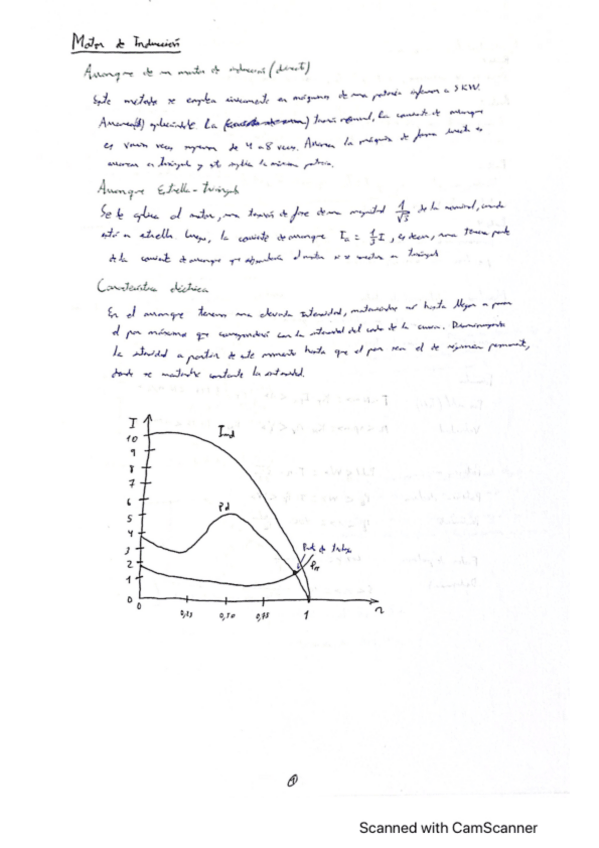 Motor de Inducción
Arranque de un motor de inducción (directo)
Este método se emplea únicamente en máquinas de una potencia inferior a 5 KW.
la tensión nominal, la corriente de arranque
es varias veces mayor de 4 a 8 veces. la máquina de forma directa es
en triángulo y
Arranque Estrella-triángulo
Se le aplica al motor, una tensión de fase de una magnitud 1/√3 de la nominal, cuando
está en estrella luego, la corriente de arranque Ia = 1/3 I, es decir, una tercera parte
de la corriente de arranque que el motor si se conecta en triángulo
Característica eléctrica
En el arranque tenemos una elevada intensidad, hasta llegar a
el par máximo que corresponderá con la intensidad del codo de la curva.
la intensidad a partir de este momento hasta que el par sea el de régimen permanente,
donde se mantendrá constante la intensidad.
I
10
9
8
7
6
5
4
3
2
1
0
Ind
Pd
Punto de trabajo
0
0,25
0,50
0,75
1
n
1
Scanned with CamScanner